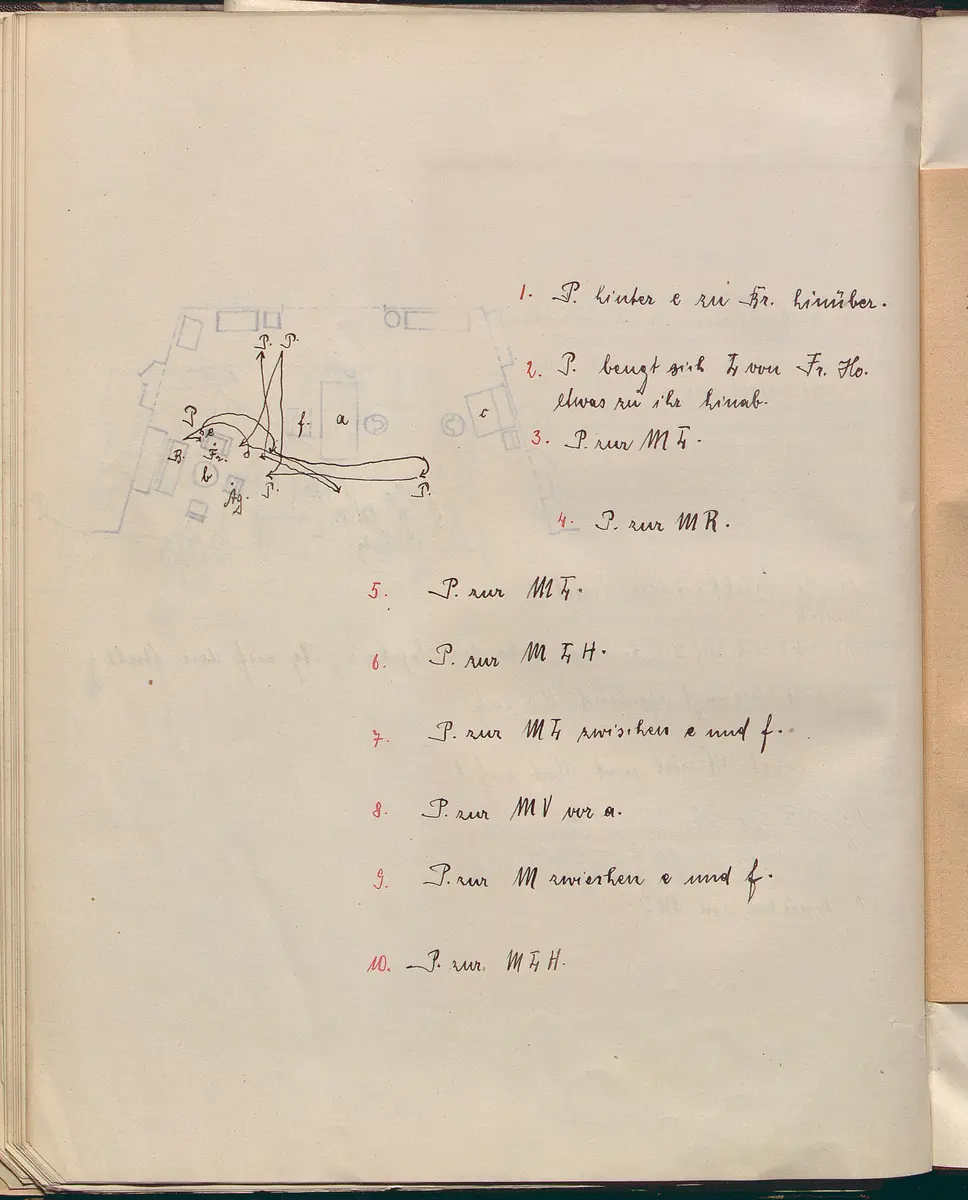 1. P. hinter e zu Br. hinüber.
2. P. beugt sich L von Fr. Ho.
etwas zu ihr hinab.
3. P. zur M L.
4. P. zur M R.
P. P.
P f. a c
e
B. Fr. d
b
Ag. P. P.
5. P. zur M L.
6. P. zur M L H.
7. P. zur M L zwischen e und f.
8. P. zur M V vor a.
9. P. zur M zwischen e und f.
10. P. zur M L H.